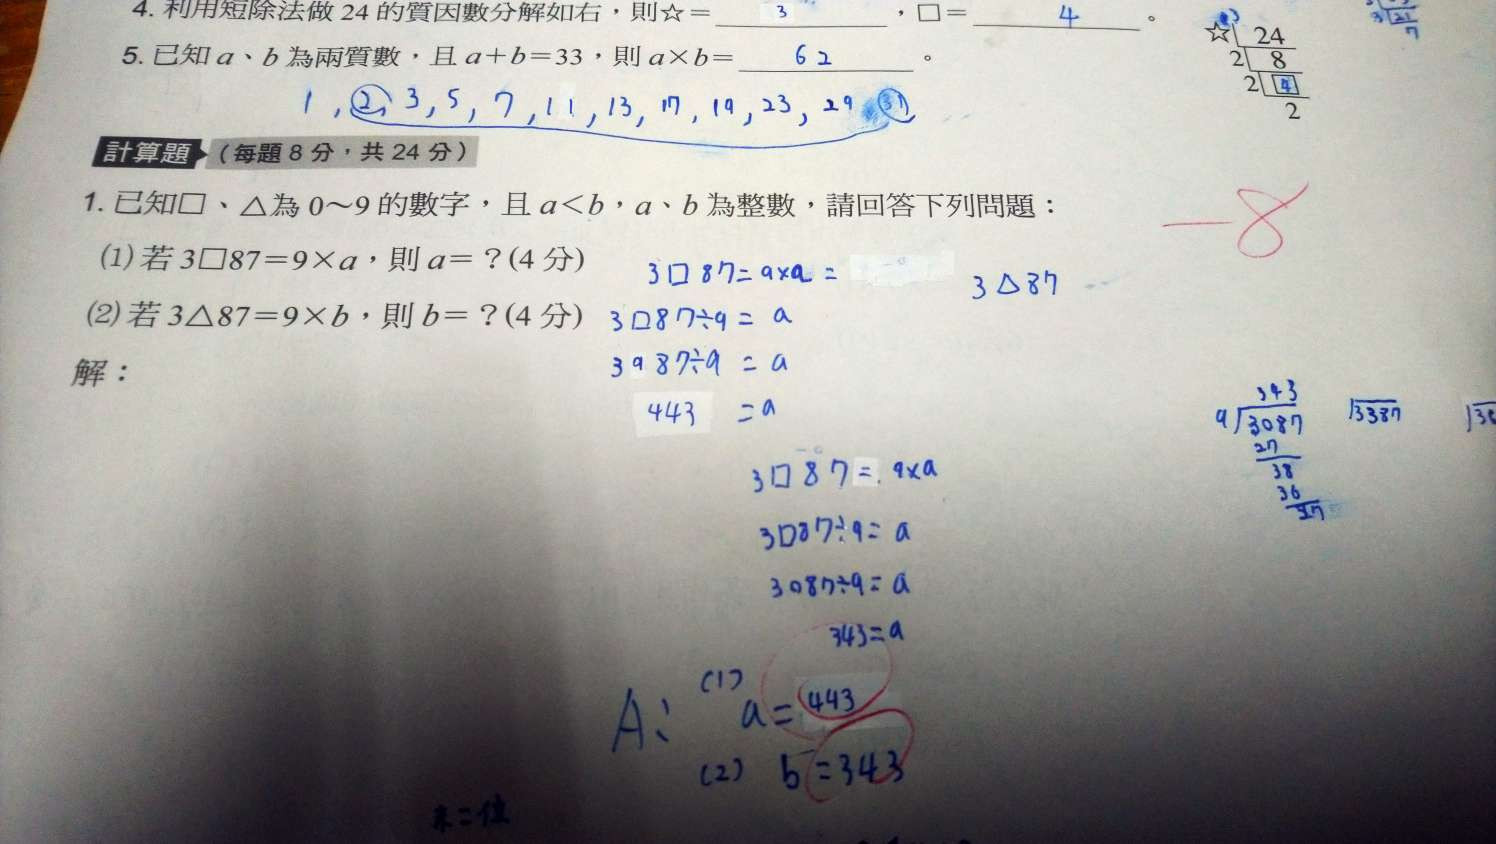 4. 利用短除法做 24 的質因數分解如右，則☆= 3 ，□= 4 。
☆ 24
2 8
2 4
2
5. 已知 a、b 為兩質數，且 a+b=33，則 a×b= 62 。
1, 2, 3, 5, 7, 11, 13, 17, 19, 23, 29 31
計算題 (每題 8 分，共 24 分)
-8
1. 已知□、△為 0～9 的數字，且 a<b，a、b 為整數，請回答下列問題：
(1) 若 3□87=9×a，則 a=？(4 分)
3□87=9×a =
3△87
(2) 若 3△87=9×b，則 b=？(4 分)
3□87÷9= a
解：
3987÷9 = a
443 = a
343
9 3087
27
38
36
27
3387
3□87=9×a
3□87÷9= a
3087÷9= a
343=a
A: (1) a=443
(2) b=343